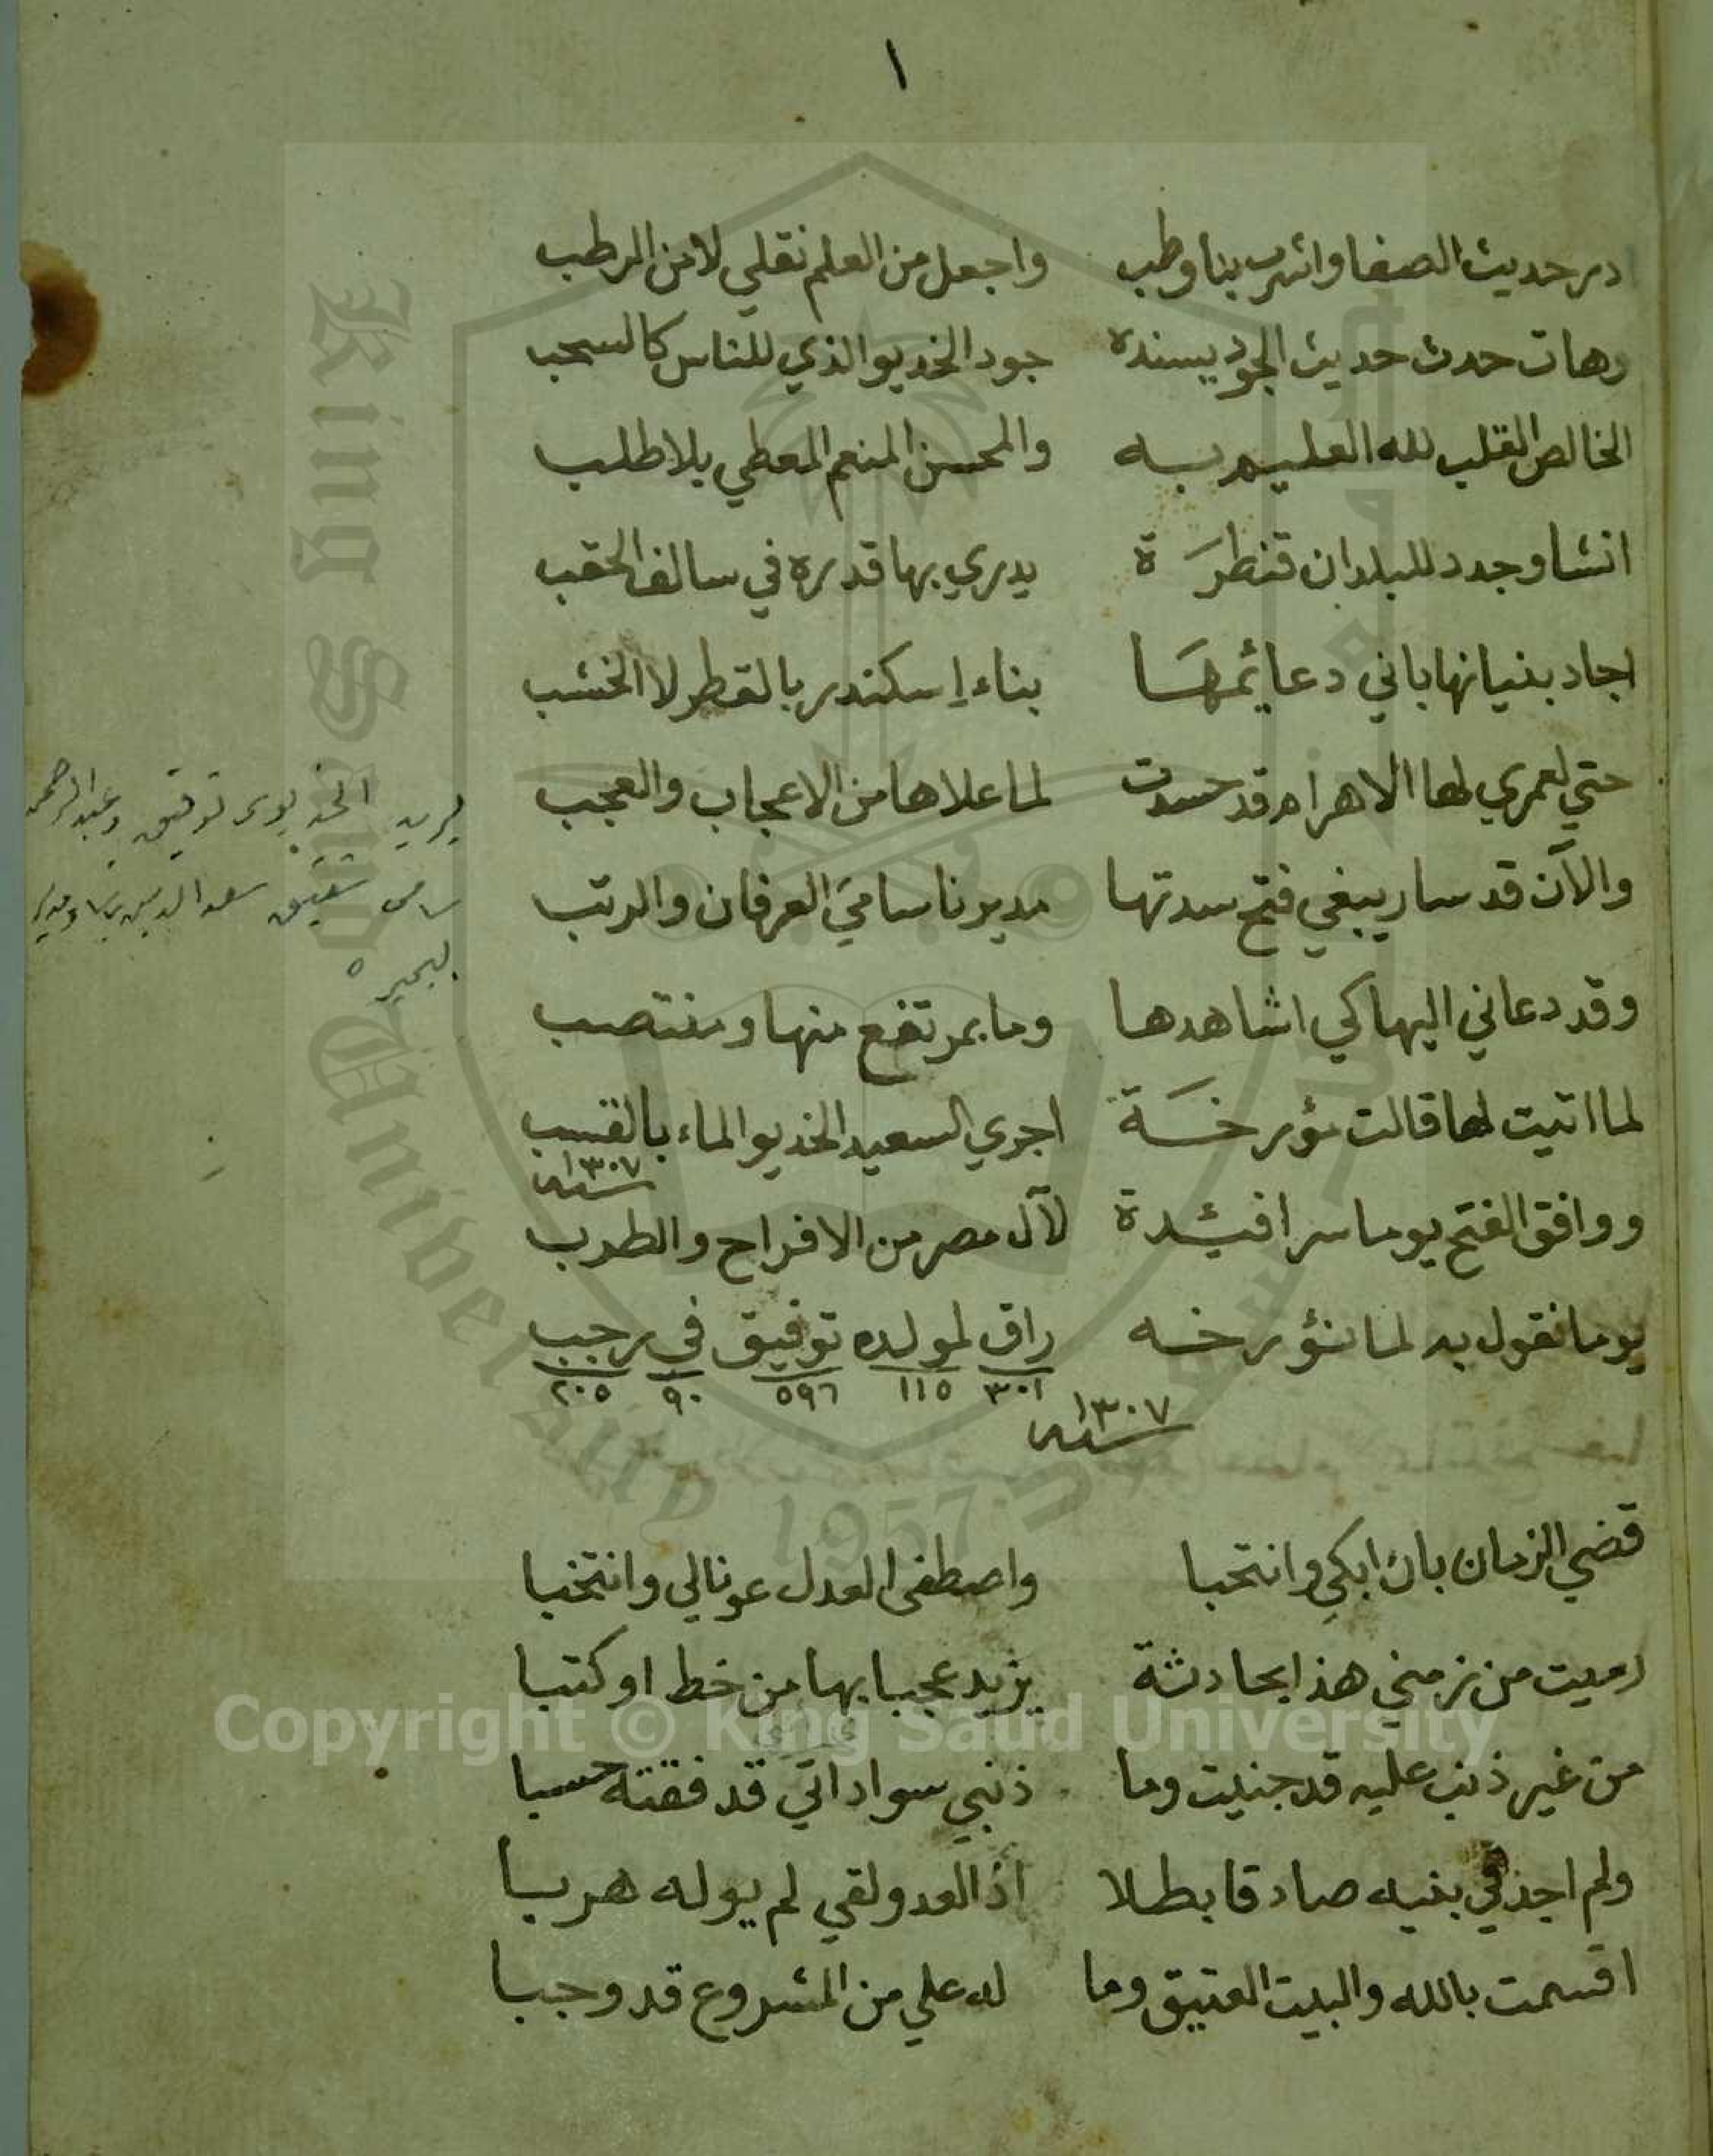 ١
در حديث الصفا واشرب بنا وطب واجعل من العلم نقلي لا من الرطب
وهات حدث حديث الجود يسنده جود الخديو الذي للناس كالسحب
الخالص القلب لله العليم به والمحسن المنعم المعطي بلا طلب
انشا وجدد للبلدان قنطرَة يدري بها قدره في سالف الحقب
اجاد بنيانها باني دعائمهَا بناء إسكندر بالقطر لا الخشب
حتي لعمري لها الاهرام قد حسدت لما علاها من الاعجاب والعجب
والآن قد سار يبغي فتح سدتها مديرنا ساميَ العرفان والرتب
وقد دعاني اليها كي اشاهدها وما بمرتفع منها ومنتصب
لما اتيت لها قالت مؤرخَة اجري السعيد الخديو الماء بالقسب
سنة ١٣٠٧
ووافق الفتح يوما سر افئدة لآل مصر من الافراح والطرب
يوما نقول به لما نؤرخه راق لمولده توفيق في رجب
٣٠١ ١١٥ ٥٩٦ ٩٠ ٢٠٥
سنة ١٣٠٧
يريد الخديوى توفيق وعبدالرحمن
سامى شقيق سعد الدين باشا ومدير
البحيره
قضي الزمان بان ابكي وانتحبا واصطفى العدل عونا لي وانتخبا
رميت من زمني هذا بحادثة يزيد عجبا بها من خط او كتبا
من غير ذنب عليه قد جنيت وما ذنبي سوا داتي قد فقته حسبا
ولم اجد في بنيه صادقا بطلا اذا العدو لقي لم يوله هربا
اقسمت بالله والبيت العتيق وما له علي من المشروع قد وجبا
King Saud University 1957
Copyright © King Saud University